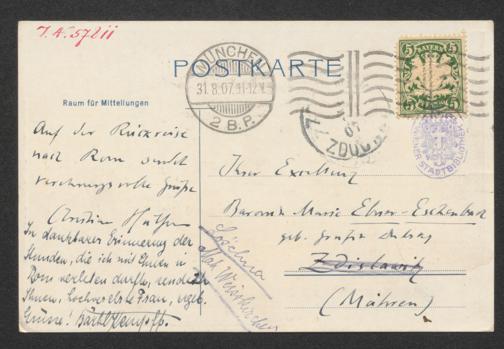 J.N. 57211
POSTKARTE
MÜNCHEN
31.8.07.11-12V.
2 B.P.
5 BAYERN 5
ZDOU
07
STADTBIBLIOTHEK
Raum für Mitteilungen
Auf der Rückreise
nach Rom sendet
verehrungsvolle Grüße
Christian
In dankbarer Erinnerung der
Stunden, die ich mit Ihnen in
Rom verleben durfte, sendet
Ihnen, hochverehrte Frau, ergeb.
Grüsse!
Ihrer Exzellenz
Baronin Marie Ebner-Eschenbach
geb. Gräfin Dubsky
Zdislawitz
(Mähren)
Weisskirchen